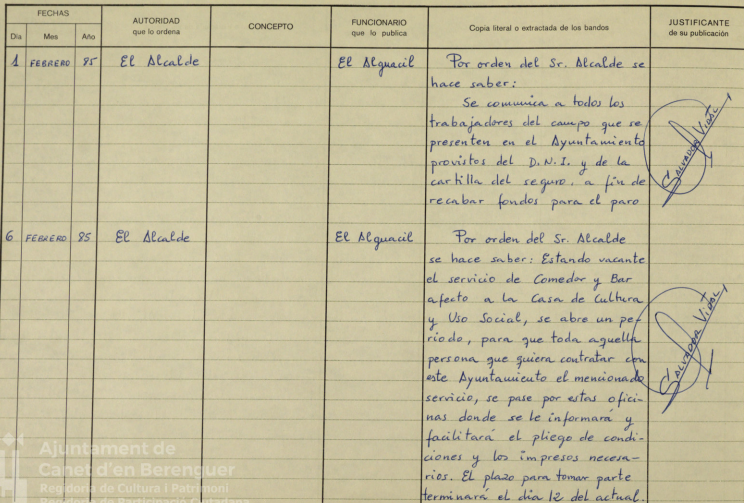 FECHAS
AUTORIDAD
que lo ordena
CONCEPTO
FUNCIONARIO
que lo publica
Copia literal o extractada de los bandos
JUSTIFICANTE
de su publicación
Día Mes Año
1 FEBRERO 85 El Alcalde El Alguacil Por orden del Sr. Alcalde se
hace saber:
Se comunica a todos los
trabajadores del campo que se
presenten en el Ayuntamiento
provistos del D.N.I. y de la
cartilla del seguro, a fin de
recabar fondos para el paro
SALVADOR VIDAL
6 FEBRERO 85 El Alcalde El Alguacil Por orden del Sr. Alcalde
se hace saber: Estando vacante
el servicio de Comedor y Bar
afecto a la Casa de Cultura
y Uso Social, se abre un pe-
riodo, para que toda aquella
persona que quiera contratar con
este Ayuntamiento el mencionado
servicio, se pase por estas ofici-
nas donde se le informará y
facilitará el pliego de condi-
ciones y los impresos necesa-
rios. El plazo para tomar parte
terminará el día 12 del actual.
SALVADOR VIDAL
Ajuntament de
Canet d'en Berenguer
Regidoria de Cultura i Patrimoni
Regidoria de Participació Ciutadana